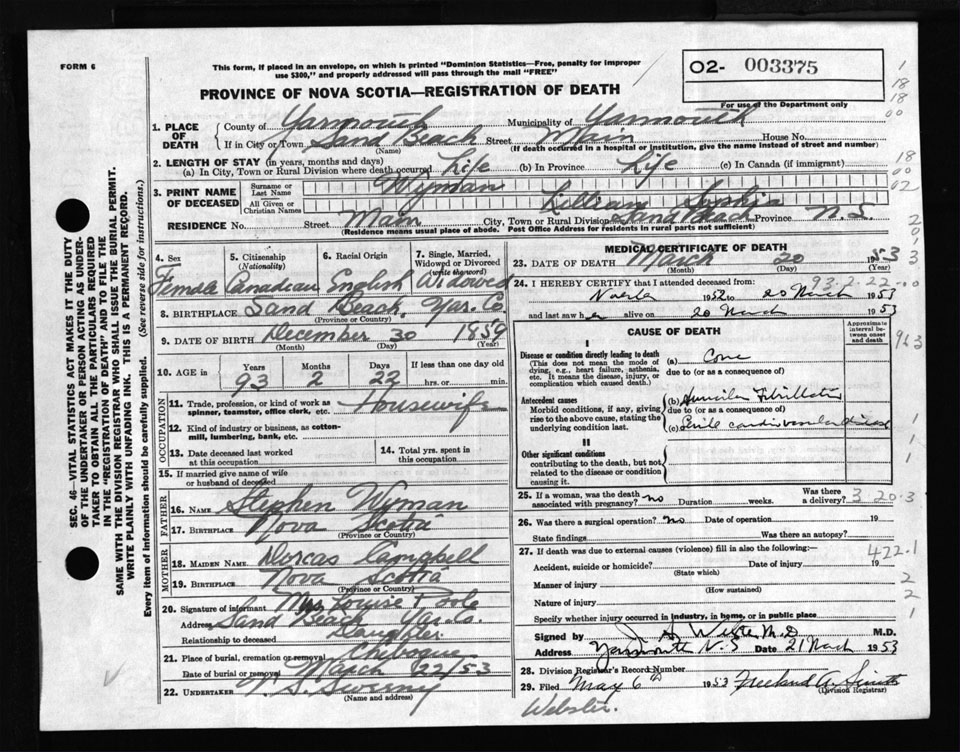 FORM 6
This form, if placed in an envelope, on which is printed "Dominion Statistics—Free, penalty for improper
use $300," and properly addressed will pass through the mail "FREE"
O2- 003375
PROVINCE OF NOVA SCOTIA—REGISTRATION OF DEATH
For use of the Department only
1. PLACE OF DEATH
County of Yarmouth Municipality of Yarmouth
If in City or Town Sand Beach Street Main House No.
(Name) (If death occurred in a hospital or institution, give the name instead of street and number)
2. LENGTH OF STAY (in years, months and days)
(a) In City, Town or Rural Division where death occurred Life (b) In Province Life (c) In Canada (if immigrant)
3. PRINT NAME OF DECEASED
Surname or Last Name Wyman
All Given or Christian Names Lillian Sophia
RESIDENCE No. Street Main City, Town or Rural Division Sand Beach Province N.S.
(Residence means usual place of abode. Post Office Address for residents in rural parts not sufficient)
4. Sex Female
5. Citizenship (Nationality) Canadian
6. Racial Origin English
7. Single, Married, Widowed or Divorced (write the word) Widowed
8. BIRTHPLACE Sand Beach, Yar. Co.
(Province or Country)
9. DATE OF BIRTH December 30 1859
(Month) (Day) (Year)
10. AGE in Years Months Days If less than one day old
93 2 22 hrs. or min.
OCCUPATION
11. Trade, profession, or kind of work as spinner, teamster, office clerk, etc. Housewife
12. Kind of industry or business, as cotton-mill, lumbering, bank, etc.
13. Date deceased last worked at this occupation
14. Total yrs. spent in this occupation
15. If married give name of wife or husband of deceased
FATHER
16. NAME Stephen Wyman
17. BIRTHPLACE Nova Scotia
(Province or Country)
MOTHER
18. MAIDEN NAME Dorcas Campbell
19. BIRTHPLACE Nova Scotia
(Province or Country)
20. Signature of informant Mrs Louise Poole
Address Sand Beach Yar. Co.
Relationship to deceased Daughter
21. Place of burial, cremation or removal Chebogue
Date of burial or removal March 22/53
22. UNDERTAKER Sweeny
(Name and address)
MEDICAL CERTIFICATE OF DEATH
23. DATE OF DEATH March 20 1953
(Month) (Day) (Year)
24. I HEREBY CERTIFY that I attended deceased from:
93.2.22
1952 to 20 March 1953
and last saw h er alive on 20 March 1953
CAUSE OF DEATH
Approximate interval between onset and death
I
Disease or condition directly leading to death
(This does not mean the mode of dying, e.g., heart failure, asthenia, etc. It means the disease, injury, or complication which caused death.)
(a)
due to (or as a consequence of)
Antecedent causes
Morbid conditions, if any, giving rise to the above cause, stating the underlying condition last.
(b) Auricular Fibrillation
due to (or as a consequence of)
(c) Senile cardiovascular disease
II
Other significant conditions
contributing to the death, but not related to the disease or condition causing it.
25. If a woman, was the death associated with pregnancy? no Duration weeks. Was there a delivery?
3 20.3
26. Was there a surgical operation? no Date of operation 19
State findings Was there an autopsy?
27. If death was due to external causes (violence) fill in also the following:—
422.1
Accident, suicide or homicide? Date of injury 19
(State which)
Manner of injury
(How sustained)
Nature of injury
Specify whether injury occurred in industry, in home, or in public place
Signed by M.D. M.D.
Yarmouth N.S Date 21 March 1953
28. Division Registrar's Record Number
29. Filed May 6th 1953 Freeland A. Smith
(Division Registrar)
Webster.
SEC. 46 VITAL STATISTICS ACT MAKES IT THE DUTY
OF THE UNDERTAKER OR PERSON ACTING AS UNDER-
TAKER TO OBTAIN ALL THE PARTICULARS REQUIRED
IN THE "REGISTRATION OF DEATH" AND TO FILE THE
SAME WITH THE DIVISION REGISTRAR WHO SHALL ISSUE THE BURIAL PERMIT.
WRITE PLAINLY WITH UNFADING INK. THIS IS A PERMANENT RECORD.
Every item of information should be carefully supplied. (See reverse side for instructions.)